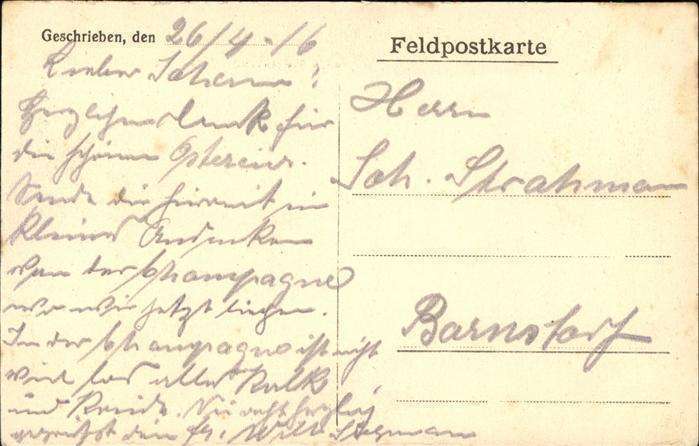 Geschrieben, den 26/4-16
Lieber
Herzlichen Dank für
die schönen Ostereier.
Sende dir hiermit ein
kleines Andenken
von der Champagne
wo wir jetzt liegen.
In der Champagne ist nicht
viel los alles Kalk
und Kreide.
Feldpostkarte
Herrn
Joh. Strahmann
Barnstorf